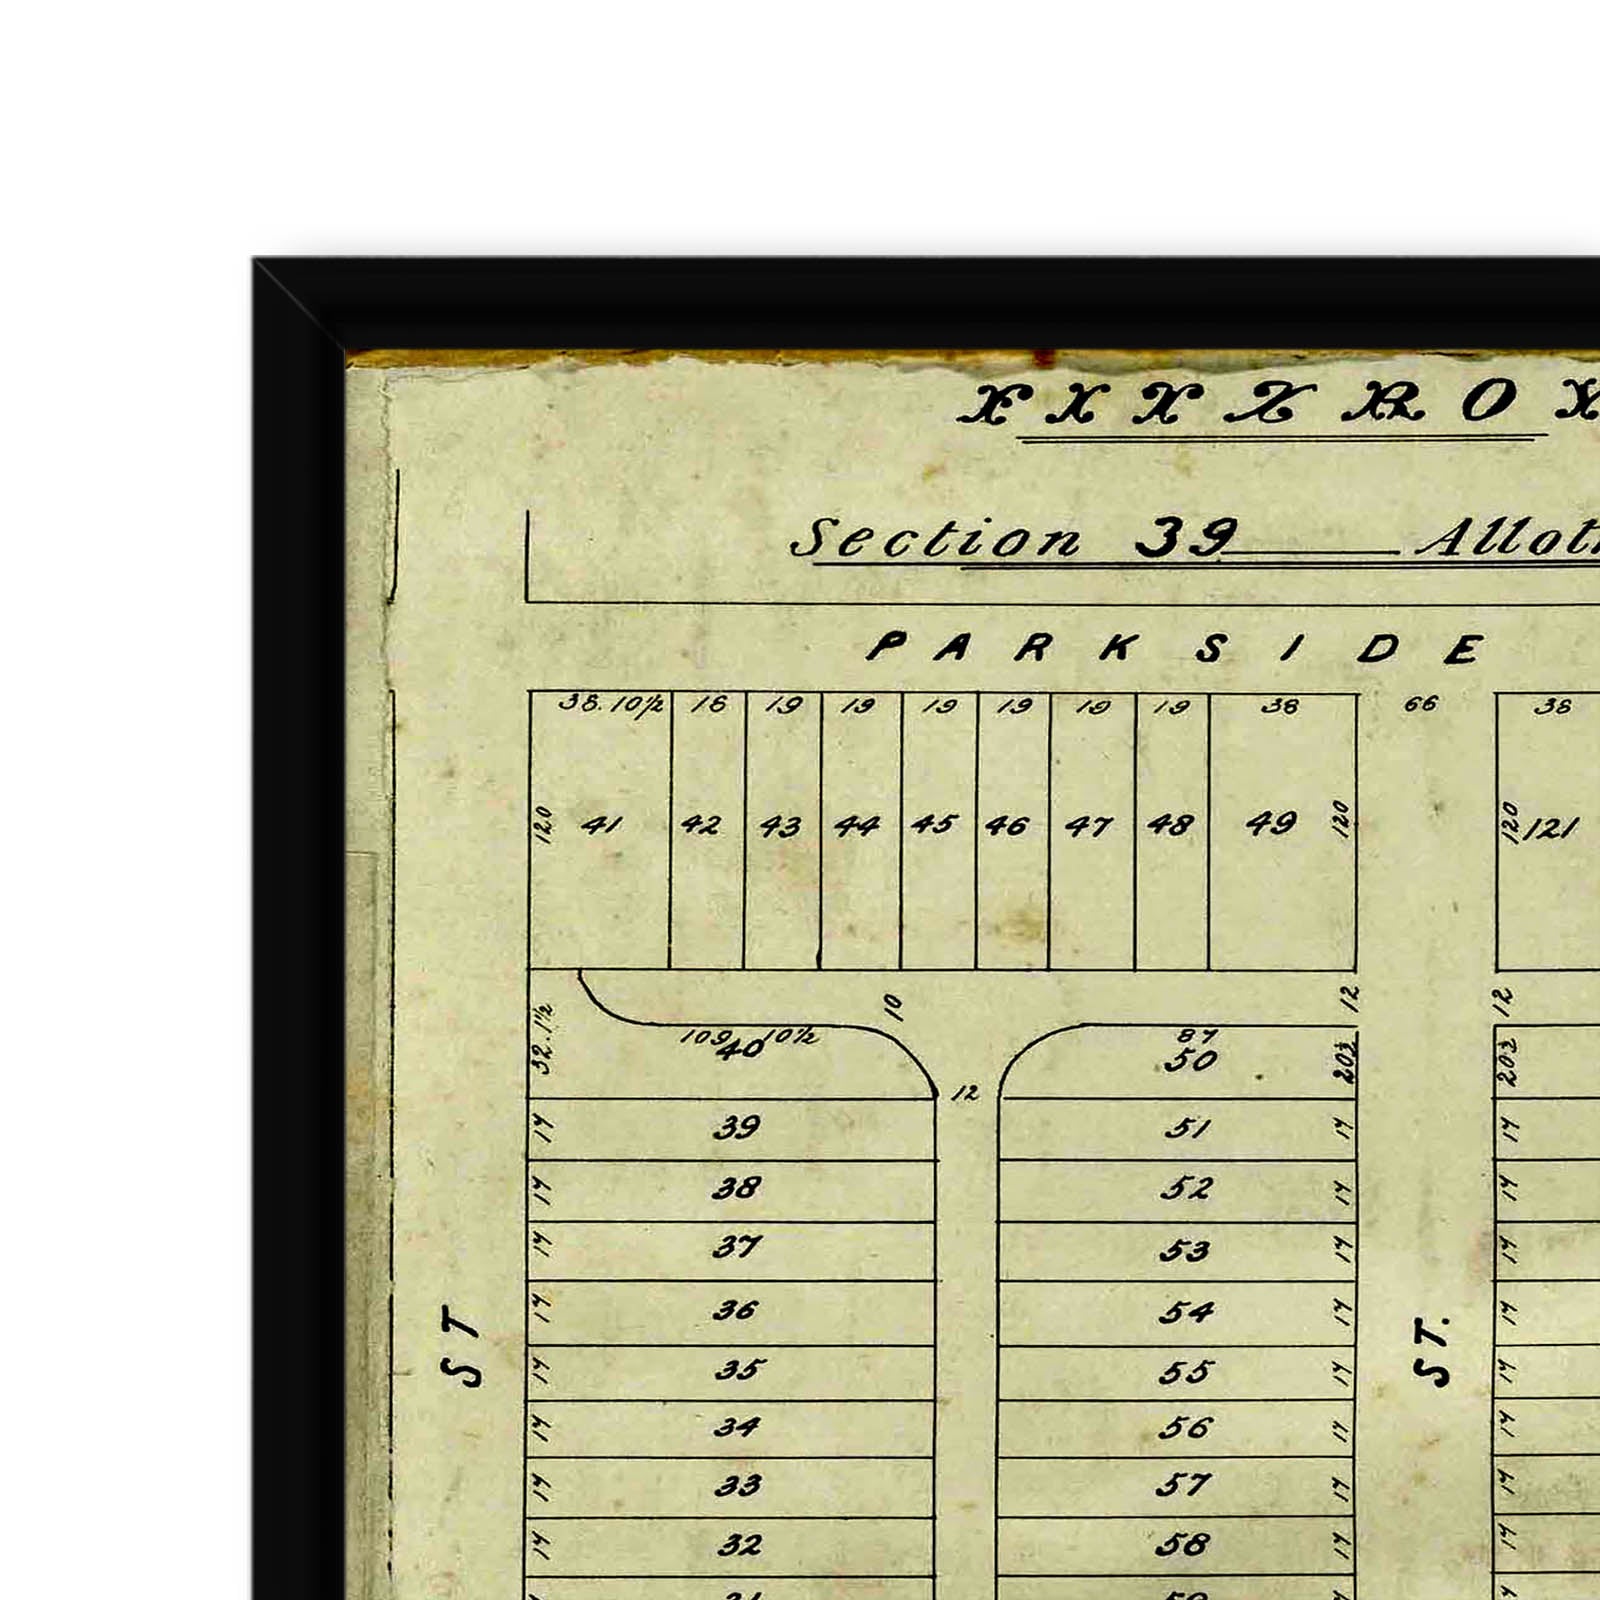 FITZRO
Section 39 Allot
PARKSIDE
38.10½ 18 19 19 19 19 19 19 38 66 38
120 41 42 43 44 45 46 47 48 49 120 120 121
10 12 12
32.1½ 109 10½ 40 87 50
12
17 39 51 17 17
17 38 52 17 17
17 37 53 17 17
17 36 54 17 17
ST ST.
17 35 55 17 17
17 34 56 17 17
17 33 57 17 17
17 32 58 17 17